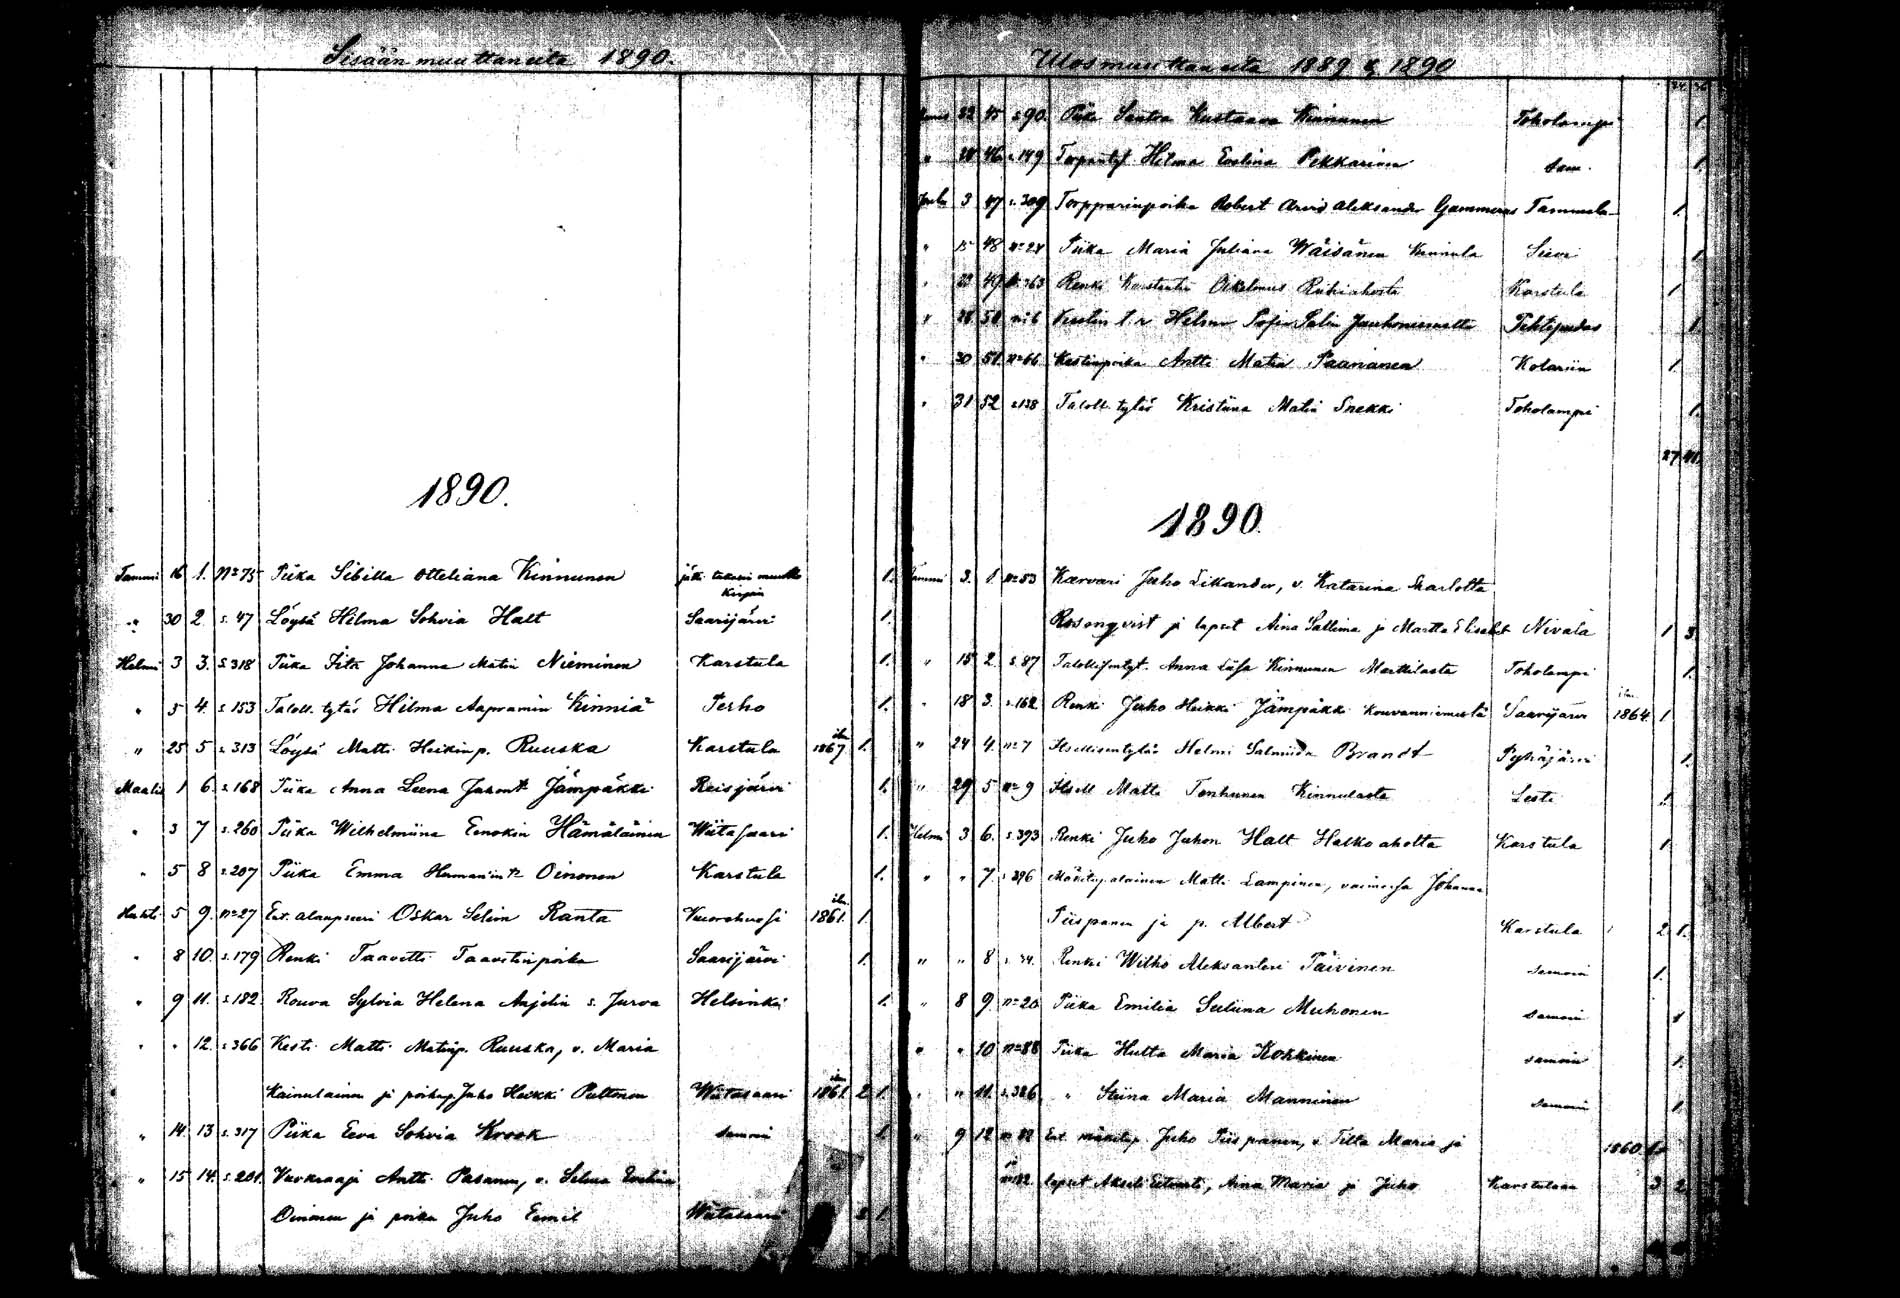 Sisään muuttaneita 1890.
1890.
Tammi 16 1. No 75 Piika Sibilla Otteliana Kinnunen jätti takasin muutto kirjan 1.
" 30 2. s. 47 Löysä Hilma Sohvia Halt Saarijärvi 1.
Helmi 3 3. s. 318 Piika Fita Johanna Matin Nieminen Karstula 1.
" 5 4. s. 153 Taloll. tytär Hilma Aapramin Kinniä Perho 1.
" 25 5 s. 313 Löysä Matti Heikinp. Ruuska Karstula 1867 1.
Maalis 1 6. s. 168 Piika Anna Leena Juhont. Jämpäkki Reisjärvi 1.
" 3 7 s. 260 Piika Wilhelmiina Eenokin Hämäläinen Wiitasaari 1.
" 5 8 s. 207 Piika Emma Hermanin tr Oinonen Karstula 1.
Huhti 5 9. No 27 Ent. alaupseeri Oskar Selim Ranta 1861. 1.
" 8 10. s. 179 Renki Taavetti Taavetinpoika Saarijärvi 1.
" 9 11. s. 182 Rouva Sylvia Helena Anjelin s. Jurva Helsinki 1.
" " 12. s. 366 Kesti Matti Matinp. Ruuska, v. Maria
Kainulainen ja poikap. Juho Heikki Pultonen Wiitasaari 1861. 2 1.
" 14 13 s. 317 Piika Eeva Sohvia Krook samoin 1.
" 15 14. s. 201. Vuokraaja Antti Pasanen, v. Selma Eveliina
Oinonen ja poika Juho Eemil Wiitasaari 2 1.
Ulosmuuttaneita 1889 & 1890
22 45 s. 90. Piika Santra Kustaava Kinnunen Toholampi 1.
" 28 46 s. 149 Hilma Eveliina Pekkarinen sam. 1.
Joulu 3 47 s. 309 Torpparinpoika Robert Arvid Aleksander Gammerus Tammela 1.
" 15 48 No 24 Piika Maria Juliana Wäisänen Kinnula Sievi 1.
" 23 49 No 63 Renki Konstantin Karstula 1
" 28 50 No 6 Kestin l. Helena Sofia Pihtipudas 1.
" 30 51. No 66 Kestinpoika Antti Matin Paananen Kolariin 1.
" 31 52 s. 138 Taloll. tytär Kristiina Matin Snekki Toholampi 1.
27 41.
1890.
Tammi 3. 1. No 53 Karvari Juho Likander, v. Katarina Skarlotta
Rosenqvist ja lapset Aina Sallima ja Martta Elisabet Nivala 1 3.
" 15 2. s. 87 Anna Liisa Kinnunen Marttilasta Toholampi 1.
" 18 3. s. 162 Renki Juho Heikki Jämpäkki Kouvanniemestä Saarijärvi 1864. 1
" 24 4. No 7 Itsellisentytär Helmi Salmiida Brandt Pyhäjärvi 1.
" 29 5 No 9 Itsell Matti Tenhunen Kinnulasta Lesti 1.
Helmi 3 6. s. 393 Renki Juho Juhon Halt Halkoaholta Karstula 1.
" " 7. s. 396 Mäkitupalainen Matti Lampinen, vaimonsa Johanna
Piispanen ja p. Albert Karstula 2 1.
" " 8 Renki Wilho Aleksanteri Päivinen samoin 1.
" 8 9. No 20 Piika Emilia Suliina Muhonen samoin 1
" " 10 No 88 Piika Hulta Maria Kokkinen samoin 1.
" " 11. s. 386 " Stiina Maria Manninen samoin 1.
" 9 12 No 82 Ent. mäkitup. Juho Piispanen, v. Tilta Maria ja 1860. 1.
lapset Akseli Eetvarti, Aina Maria ja Juho Karstulaan 3 2